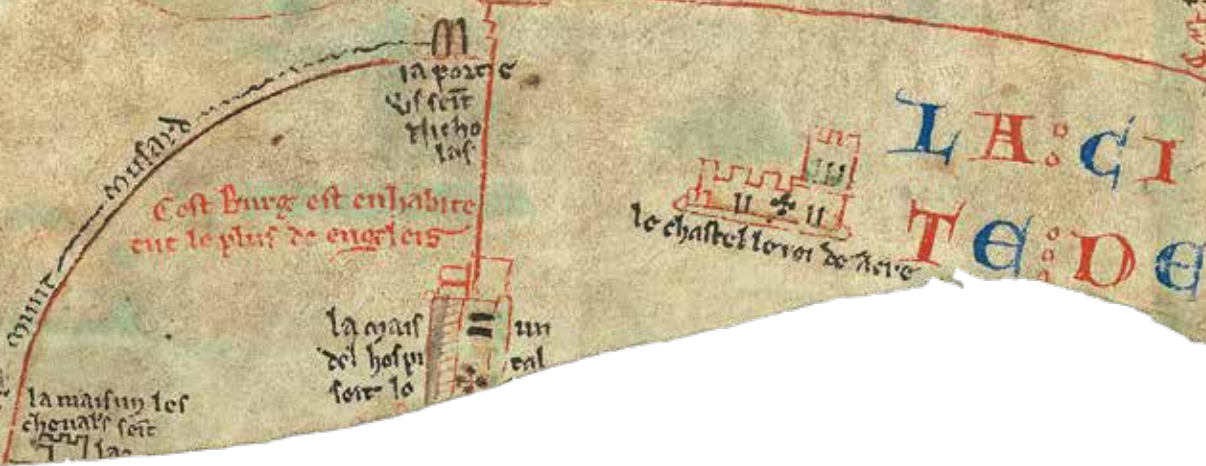 munt musard
la porte
seint
Nicho
las
Cest Burg est enhabite
ent le plus de engleis
la mais un
del hospi tal
seit lo
la maisun les
chevals seit
la
le chastel le roi de Acre
LA: CI
TE: DE